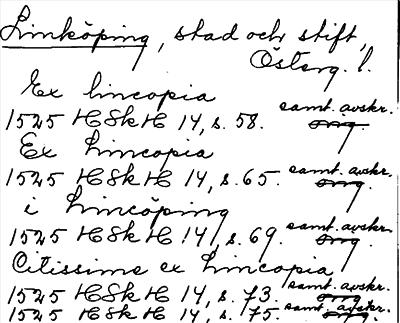 Linköping, stad och stift,
Österg. l.
Ex lincopia
1525 HSkH 14, s. 58. samt. avskr. orig.
Ex Lincopia
1525 HSkH 14, s. 65. samt. avskr. orig.
i Lincöping
1525 HSkH 14, s. 69. samt. avskr. orig.
Citissime ex Lincopia
1525 HSkH 14, s. 73. samt. avskr. orig.
1525 HSkH 14, s. 75. samt. avskr. orig.